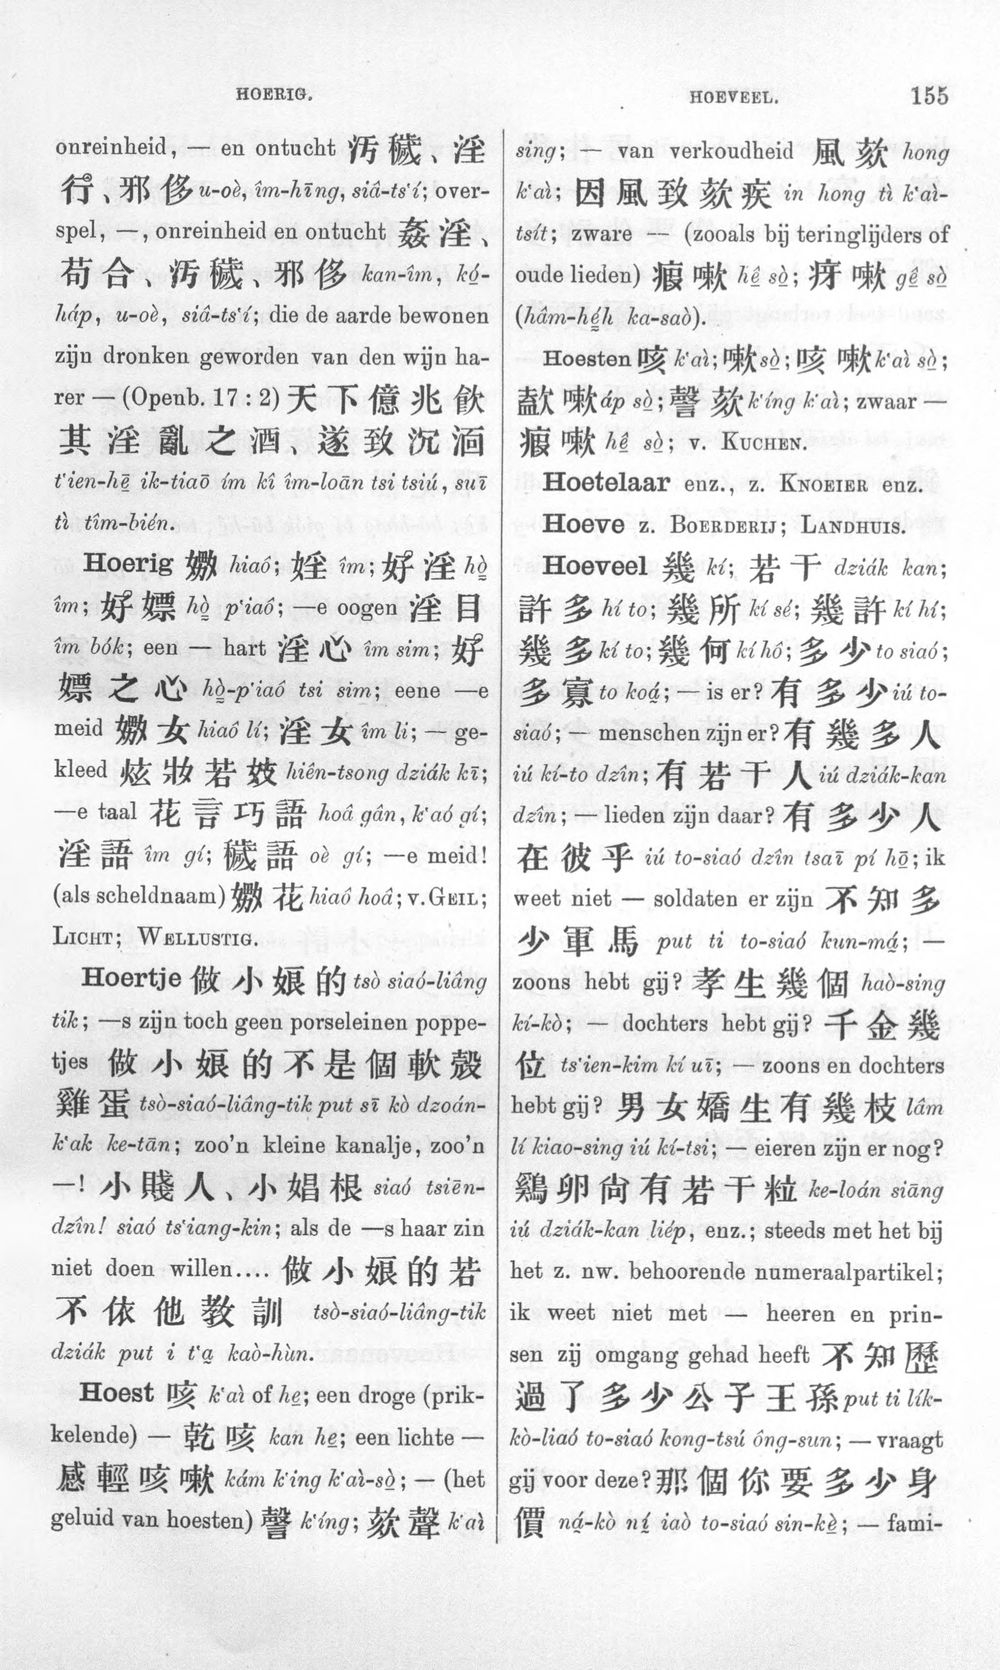 HOERIG.
HOEVEEL. 155
onreinheid, — en ontucht 汚穢、淫
行、邪侈 u-oè, îm-hīng, siâ-ts‘í; over-
spel, —, onreinheid en ontucht 姦淫、
苟合、汚穢、邪侈 kan-îm, kó-
háp, u-oè, siâ-ts‘í; die de aarde bewonen
zijn dronken geworden van den wijn ha-
rer — (Openb. 17 : 2) 天下億兆飲
其淫亂之酒、遂致沉湎
t‘ien-hē ik-tiaō ím kî îm-loān tsi tsiú, suī
tì tîm-bién.
Hoerig 嫐 hiaô; 婬 îm; 好淫 hò̤
îm; 好嫖 hò̤ p‘iaô; —e oogen 淫目
îm bók; een — hart 淫心 îm sim; 好
嫖之心 hò̤-p‘iaô tsi sim; eene —e
meid 嫐女 hiaô lí; 淫女 îm li; — ge-
kleed 炫妝若妓 hiên-tsong dziák kī;
—e taal 花言巧語 hoâ gân, k‘aó gí;
淫語 îm gí; 穢語 oè gí; —e meid!
(als scheldnaam) 嫐花 hiaô hoâ; v. GEIL;
LICHT; WELLUSTIG.
Hoertje 做小娘的 tsò siaó-liâng
tik; —s zijn toch geen porseleinen poppe-
tjes 做小娘的不是個軟殼
雞蛋 tsò-siaó-liâng-tik put sī kò dzoán-
k‘ak ke-tān; zoo’n kleine kanalje, zoo’n
—! 小賤人、小娼根 siaó tsiēn-
dzîn! siaó ts‘iang-kin; als de —s haar zin
niet doen willen.... 做小娘的若
不依他教訓 tsò-siaó-liâng-tik
dziák put i t‘a̤ kaò-hùn.
Hoest 咳 k‘aì of he̤; een droge (prik-
kelende) — 乾咳 kan he̤; een lichte —
感輕咳嗽 kám k‘ing k‘aì-sò̤; — (het
geluid van hoesten) 謦 k‘íng; 欬聲 k‘aì
sing; — van verkoudheid 風欬 hong
k‘aì; 因風致欬疾 in hong tì k‘aì-
tsít; zware — (zooals bij teringlijders of
oude lieden) 瘕嗽 hê̤ sò̤; 疨嗽 gê̤ sò̤
(hâm-hé̤h ka-saò).
Hoesten 咳 k‘aì; 嗽 sò̤; 咳嗽 k‘aì sò̤;
嗽 áp sò̤; 謦欬 k‘íng k‘aì; zwaar —
瘕嗽 hê̤ sò̤; v. KUCHEN.
Hoetelaar enz., z. KNOEIER enz.
Hoeve z. BOERDERIJ; LANDHUIS.
Hoeveel 幾 kí; 若干 dziák kan;
許多 hí to; 幾所 kí sé; 幾許 kí hí;
幾多 kí to; 幾何 kí hô; 多少 to siaó;
多寡 to koá̤; — is er? 有多少 iú to-
siaó; — menschen zijn er? 有幾多人
iú kí-to dzîn; 有若干人 iú dziák-kan
dzîn; — lieden zijn daar? 有多少人
在彼乎 iú to-siaó dzîn tsaī pí hō; ik
weet niet — soldaten er zijn 不知多
少軍馬 put ti to-siaó kun-má̤; —
zoons hebt gij? 孝生幾個 haò-sing
kí-kò; — dochters hebt gij? 千金幾
位 ts‘ien-kim kí uī; — zoons en dochters
hebt gij? 男女嬌生有幾枝 lâm
lí kiao-sing iú kí-tsi; — eieren zijn er nog?
鷄卵尙有若干粒 ke-loán siāng
iú dziák-kan liép, enz.; steeds met het bij
het z. nw. behoorende numeraalpartikel;
ik weet niet met — heeren en prin-
sen zij omgang gehad heeft 不知歷
過了多少公子王孫 put ti lík-
kò-liaó to-siaó kong-tsú ông-sun; — vraagt
gij voor deze? 那個你要多少身
價 ná̤-kò ní̤ iaò to-siaó sin-kè̤; — fami-